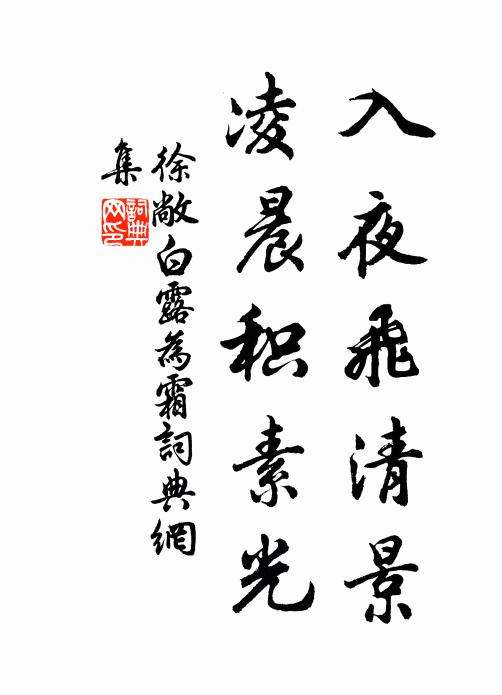 入夜飛清景
凌晨积素光
徐敞白露為霜詞典網
集
詞典
网印